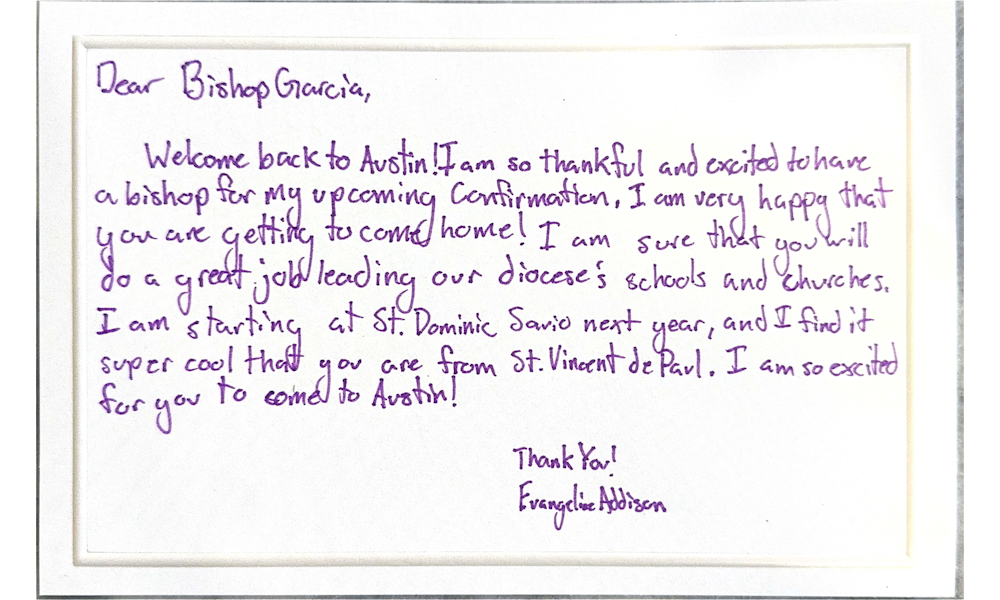 Dear Bishop Garcia,
Welcome back to Austin! I am so thankful and excited to have
a bishop for my upcoming Confirmation. I am very happy that
you are getting to come home! I am sure that you will
do a great job leading our diocese's schools and churches.
I am starting at St. Dominic Savio next year, and I find it
super cool that you are from St. Vincent de Paul. I am so excited
for you to come to Austin!
Thank You!
Evangeline Addison